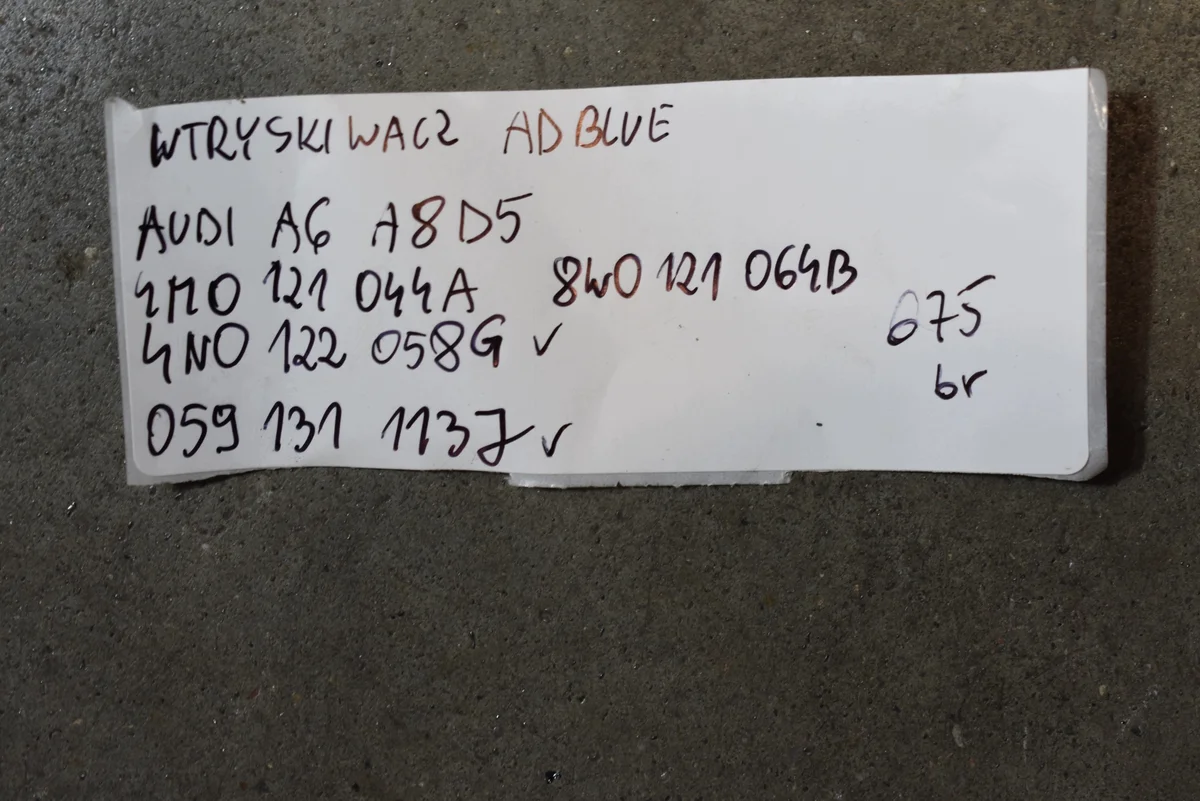 WTRYSKIWACZ ADBLUE
AUDI A6 A8 D5
4M0 121 044A 8W0 121 064B
4N0 122 058G ✓
059 131 113J ✓
675
br